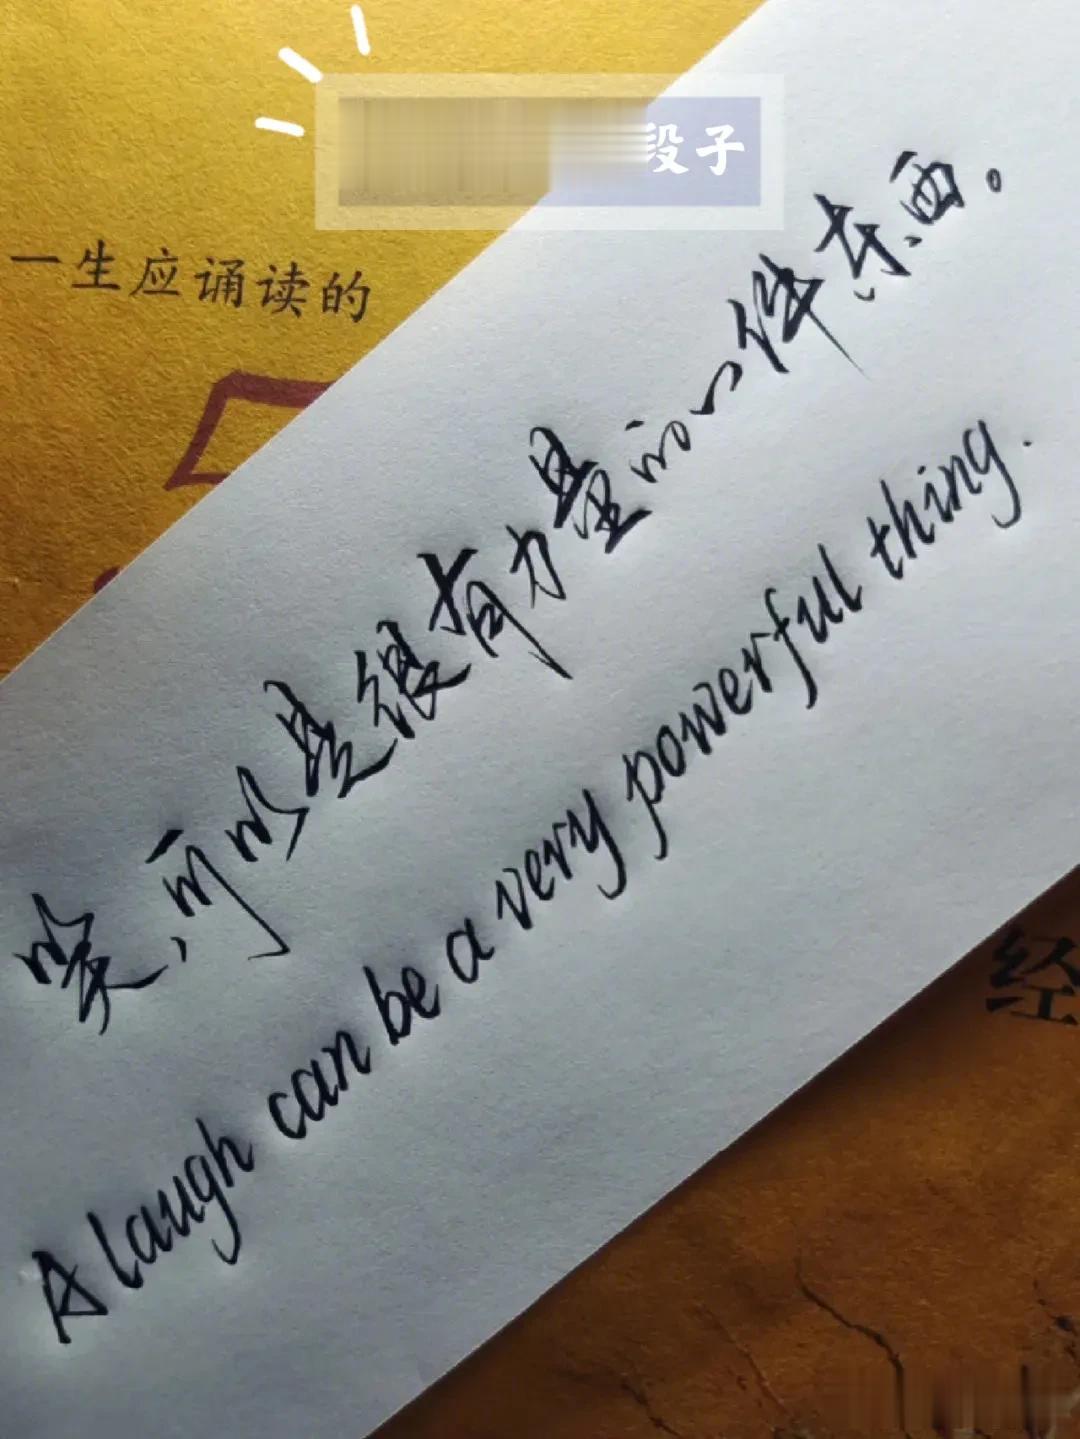 段子
一生应诵读的
笑,可以是很有力量的一件东西。
A laugh can be a very powerful thing.
经